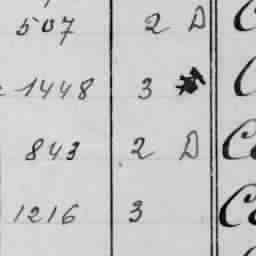 507 2 D C
1448 3 C
843 2 D Co
1216 3 Co